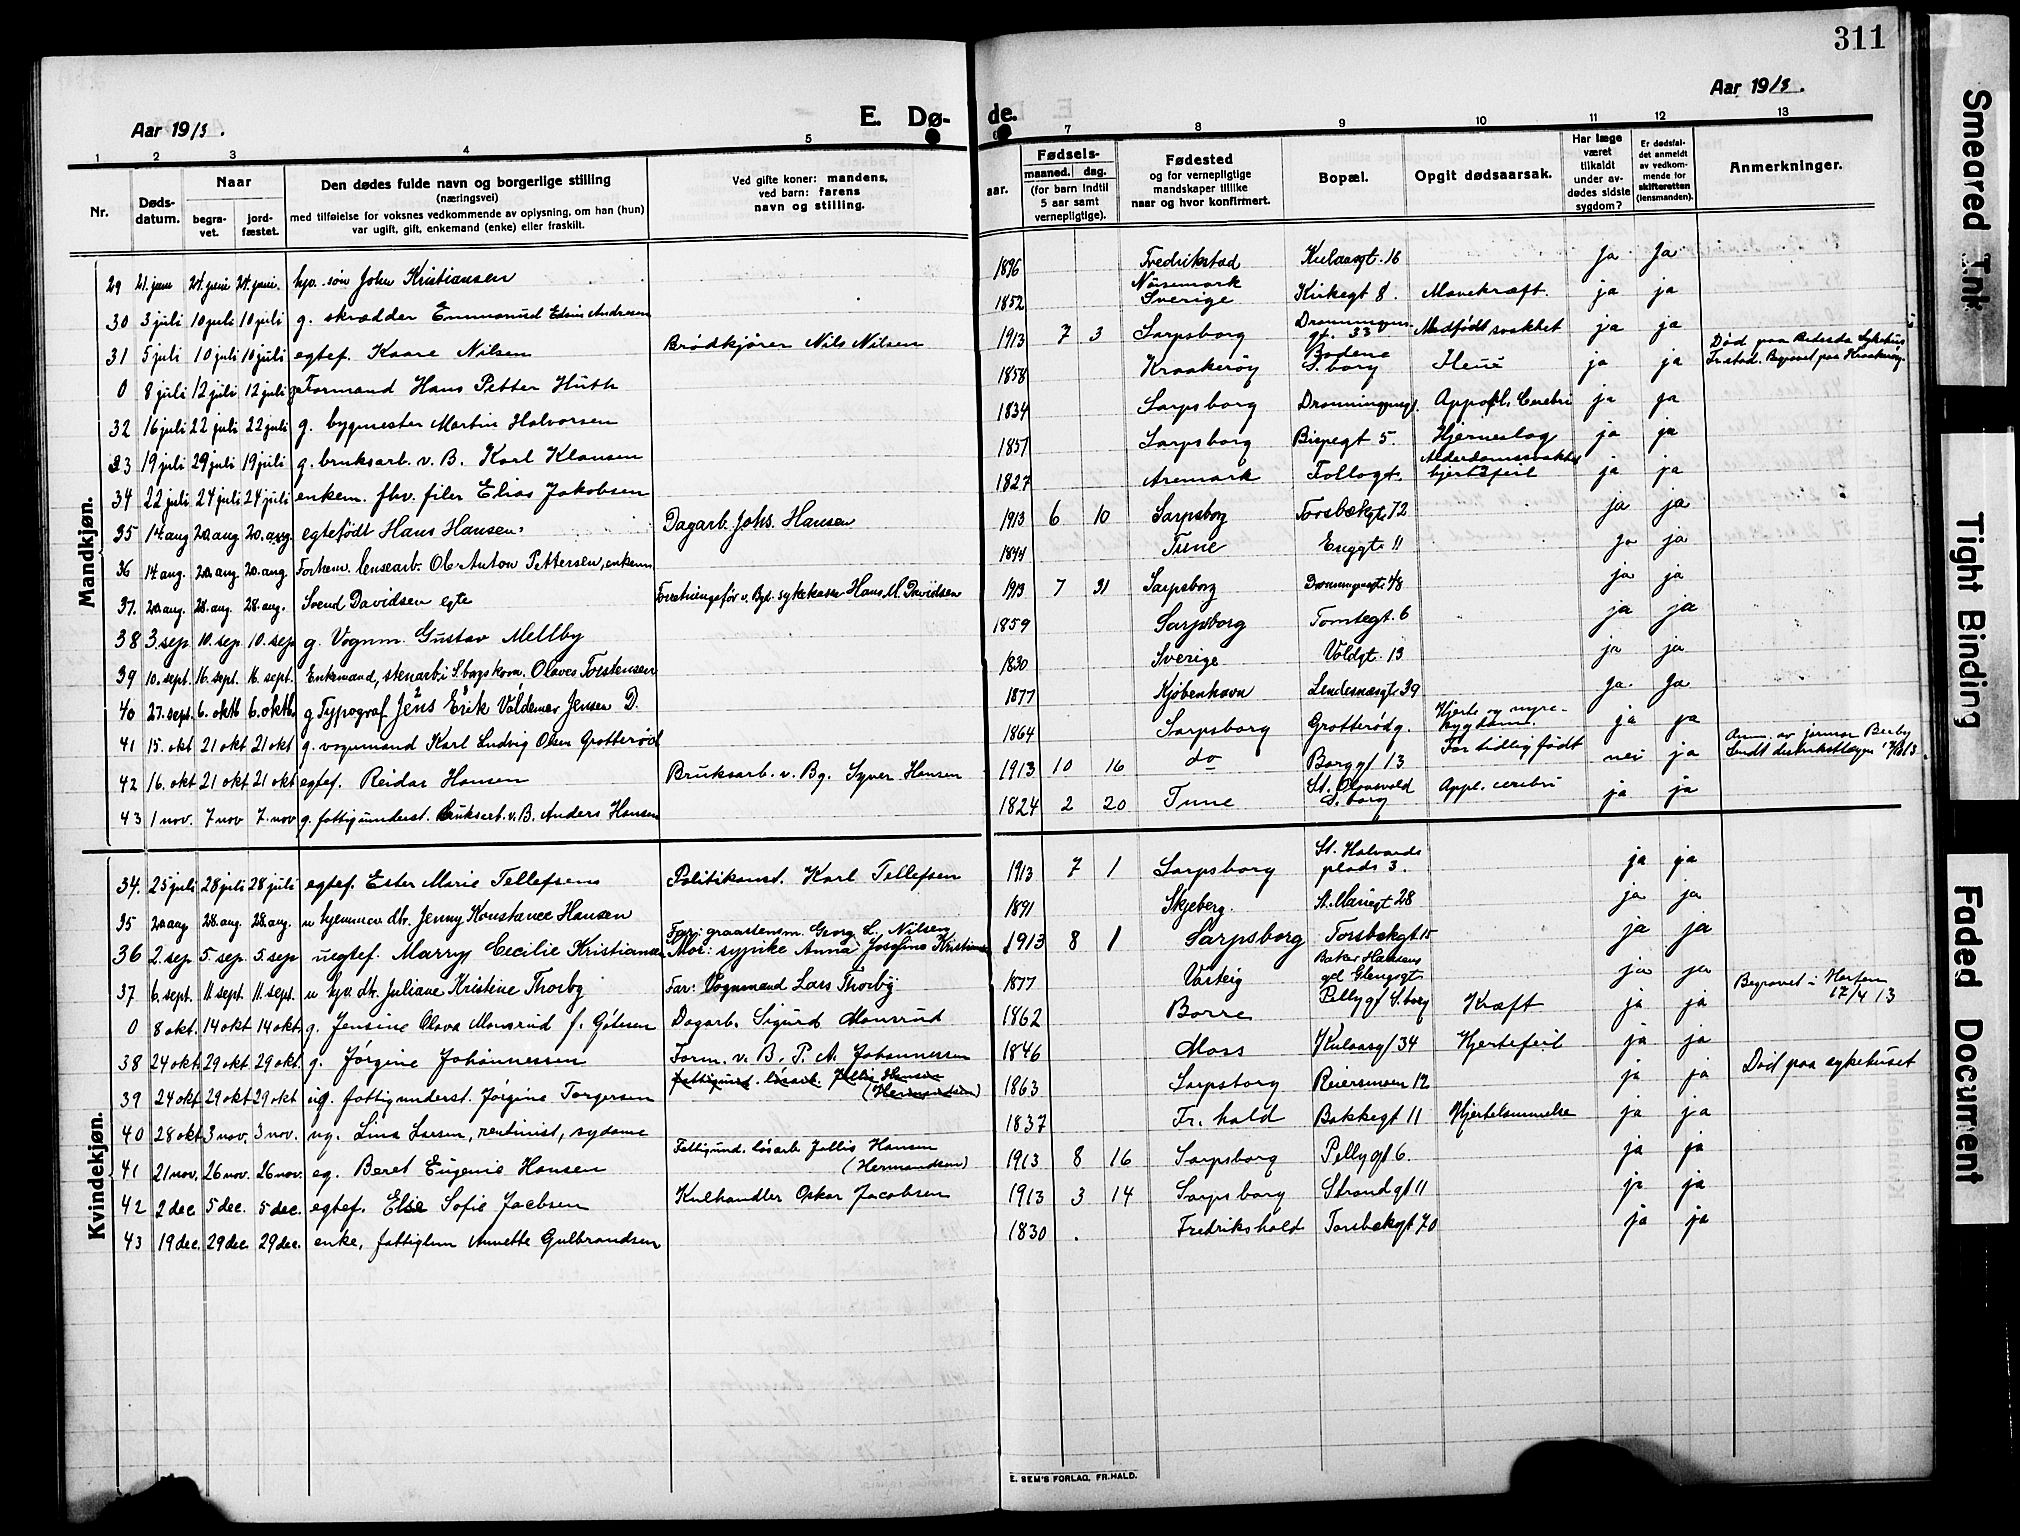 311
Aar 1913.
E. Dø-
de.
Aar 1913.
1 2 3 4 5
6 7 8 9 10 11 12 13
Nr.
Døds-
datum.
Naar
begra-
vet.
jord-
fæstet.
Den dødes fulde navn og borgerlige stilling
(næringsvei)
med tilføielse for voksnes vedkommende av oplysning, om han (hun)
var ugift, gift, enkemand (enke) eller fraskilt.
Ved gifte koner: mandens,
ved barn: farens
navn og stilling.
aar.
Fødsels-
maaned. dag.
(for barn indtil
5 aar samt
vernepligtige).
Fødested
og for vernepligtige
mandskaper tillike
naar og hvor konfirmert.
Bopæl.
Opgit dødsaarsak.
Har læge
været
tilkaldt
under av-
dødes sidste
sygdom?
Er dødsfal-
det anmeldt
av vedkom-
mende for
skifteretten
(lensmanden).
Anmerkninger.
Mandkjøn.
29 21. juni 24. juni 24. juni. hjv. søn John Kristiansen 1896 Fredrikstad Kulaasgt. 16 Ja Ja
30 3 juli 10 juli 10 juli g. skrædder Emmanuel Edvin Andresen 1852 Nøssemark Sverige Kirkegt 8. Mavekræft. ja ja
31 5 juli 10 juli 10 juli egtef. Kaare Nilsen Brødkjører Nils Nilsen 1913 7 3 Sarpsborg Dronningens gt. 33 Medfødt svakhet ja ja
0 8 juli 12 juli 12 juli g. Formand Hans Petter Huth 1858 Kraakerøy Bodene S.borg ja ja Død paa Betesda Sykehus Fr.stad. Begravet paa Kraakerøy.
32 16 juli 22 juli 22 juli g. bygmester Martin Halvorsen 1834 Sarpsborg Dronningensgt. Appopl. Cerebri ja ja
33 19 juli 29 juli 19 juli g. bruksarb. v. B. Karl Klausen 1851 Sarpsborg Bispegt 5. Hjerneslag ja ja
34 22 juli 24 juli 24 juli enkem. fhv. filer Elias Jakobsen 1827 Aremark Follogt. Alderdomssvakhet hjertefeil ja ja
35 14 aug 20. aug 20. aug egtefødt Hans Hansen. Dagarb. Johs. Hansen 1913 6 10 Sarpsborg Torsbækgt. 72 ja ja
36 14 aug. 20. aug 20. aug. Forhenv. lensearb. Ole Anton Pettersen, enkem 1844 Tune Enggt. 11 ja ja
37. 20. aug. 28. aug. 28. aug. Svend Davidsen egte Forretningsfør v. Byt. sykekasse Hans M. Davidsen 1913 7 31 Sarpsborg Dronningensgt. 48 ja ja
38 3. sep 10. sep. 10. sep g. Vognm. Gustav Mellby 1859 Sarpsborg Tomtegt. 6 ja ja
39 10. sept. 16. sept. 16. sept. Enkemand, stenarb. i S.borgs kom. Olaves Torstensen 1830 Sverige Voldgt. 13 ja ja
40 27. sept. 6. oktb 6. oktb. g Typograf Jens Erik Valdemar Jensen D. 1877 Kjøbenhavn Lendesnæsgt. 39 Ja. Ja
41 15. okt 21 okt 21 okt g. vognmand Karl Ludvig Olsen Grotterød 1864 Sarpsborg Grotterødg. Hjerte og nyre- sygdom. ja ja
42 16. okt 21 okt 21 okt egtef. Reidar Hansen Bruksarb. v. Bg. Syver Hansen 1913 10 16 do Borggt 13 For tidlig født nei ja Anm. av jormor Berby Sendt distriktslægen
43 1 nov. 7 nov 7. nov g. fattigunderst. Bruksarb. v. B. Anders Hansen 1824 2 20 Tune St. Olavsvold S.borg Appl. cerebri ja ja
Kvindekjøn.
34. 25 juli 28 juli 28 juli egtef. Ester Marie Tellefsen Politikonst. Karl Tellefsen 1913 7 1 Sarpsborg St. Halvards plads 3. ja ja
35 20. aug 28. aug. 28. aug. u hjemmev. dtr. Jenny Konstance Hansen 1891 Skjeberg. St. Mariegt 28 ja ja
36 2. sep 5. sep. 5. sep uegtef. Marry Cecilie Kristiansen Far: graastensm. Georg L. Nilsen Mor: sypike Anna Josefine Kristiansen 1913 8 1 Sarpsborg Torsbekgt. 15 ja ja
37 6. sept. 11. sept. 11. sept. u hjv. dtr. Juliane Kristine Thorby Far: Vognmand Lars Thorby 1877 Varteig Baker Hansens gd Glengsgt. ja ja
0 8 okt. 14 okt 14 okt. g. Jensine Olava Monsrud f. Gøtesen Dagarb. Sigurd Monsrud 1862 Borre Pellygt S.borg Kræft ja ja Begravet i Horten 17/4 13
38 24 okt 29 okt. 29 okt. g. Jørgine Johannessen Form. v. B. P. A. Johannessen 1846 Moss Kulaasgt 34 Hjertefeil ja ja
39 24 okt. 29 okt 29 okt ug. fattigunderst. Jørgine Torgersen Fattigund. løsarb. Jellis Hansen (Hermandsen) 1863 Sarpsborg Reiersmoen 12 ja ja Død paa sykehuset
40 28 okt 3 nov. 3 nov. ug. Lina Larsen, rentenist, sydame 1837 Fr. hald Bakkegt 11 Hjertelammelse ja ja
41 21 nov. 26 nov. 26 nov. eg. Beret Eugenie Hansen Fattigund. løsarb Jellis Hansen (Hermandsen) 1913 8 16 Sarpsborg Pellygt 6. ja ja
42 2 dec 5 dec. 5 dec. egtef. Else Sofie Jacobsen Kulhandler Oskar Jacobsen 1913 3 14 Sarpsborg Strandgt 11 ja ja
43 19 dec. 29 dec. 29 dec. enke, fattiglem Annette Gulbrandsen 1830 Fredrikshald Torsbekgt 70 ja ja
E. SEM'S FORLAG, FR.HALD.
Smeared Ink
Tight Binding
Faded Document